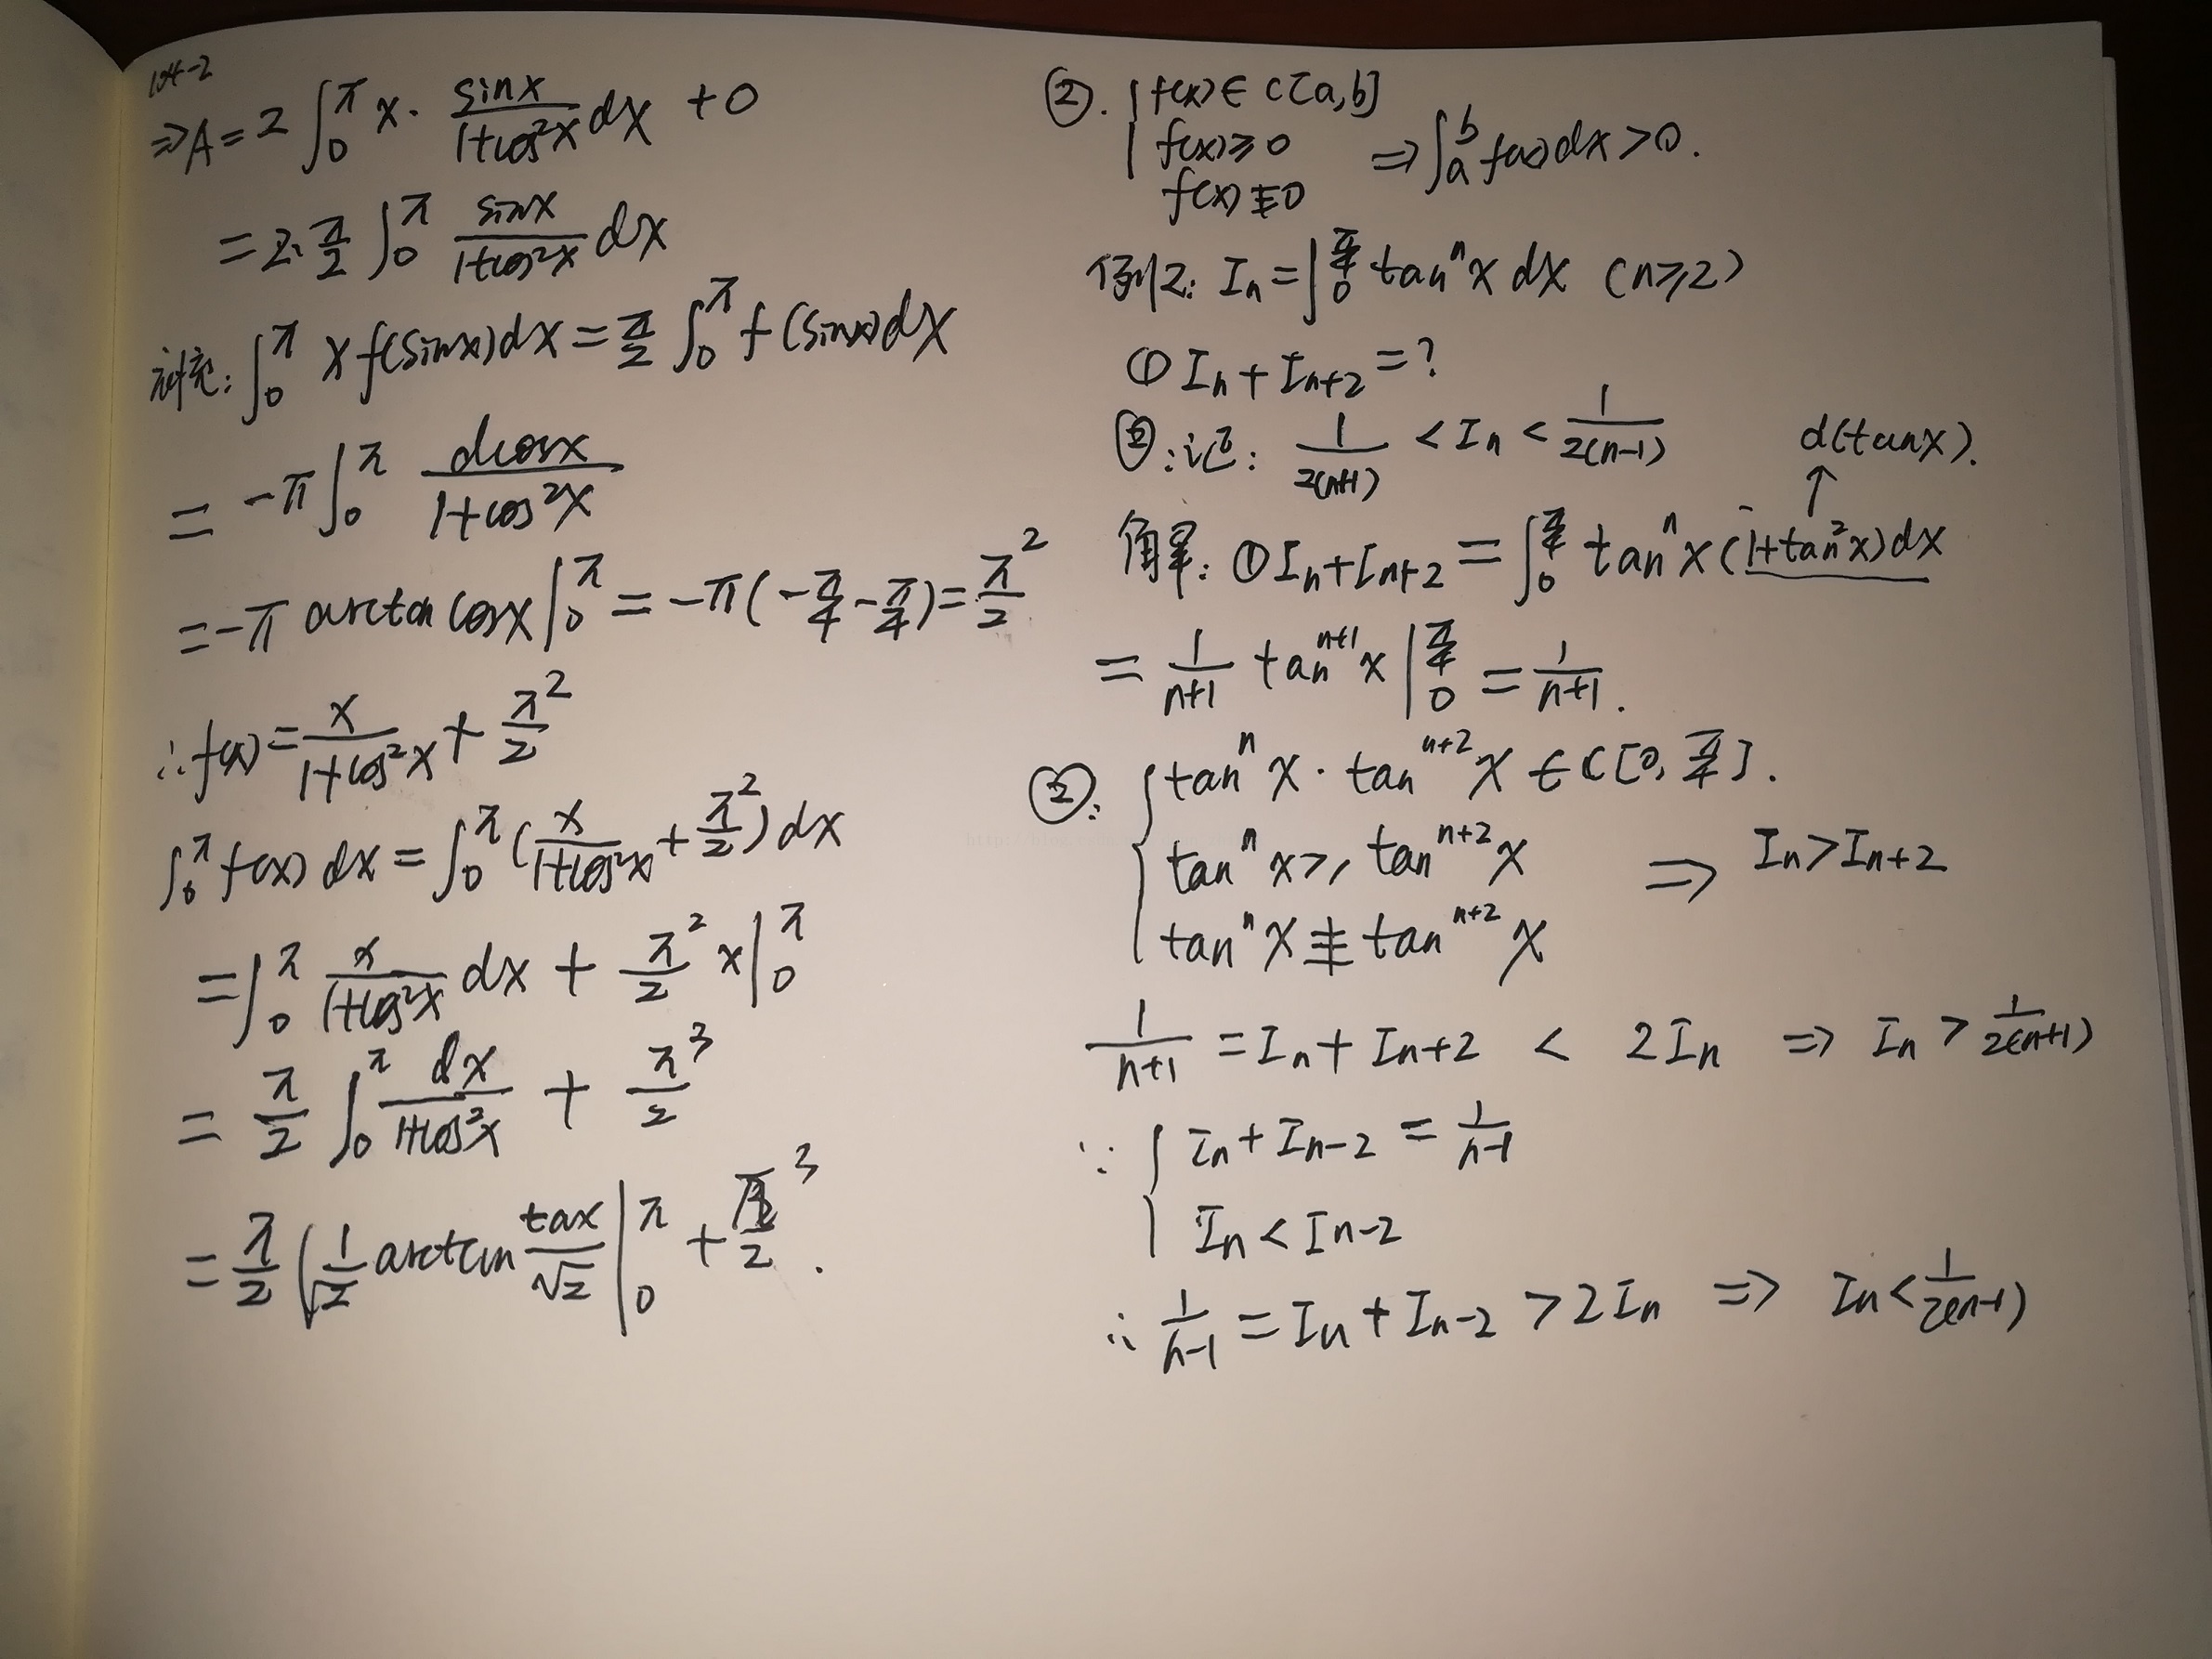 104-2
⇒A = 2 ∫₀^π x · sinx/(1+cos²x) dx + 0
= 2·π/2 ∫₀^π sinx/(1+cos²x) dx
补充: ∫₀^π x f(sinx)dx = π/2 ∫₀^π f(sinx)dx
= -π ∫₀^π dcosx/(1+cos²x)
= -π arctan cosx |₀^π = -π(-π/4 - π/4) = π²/2
∴ f(x) = x/(1+cos²x) + π²/2
∫₀^π f(x) dx = ∫₀^π (x/(1+cos²x) + π²/2) dx
= ∫₀^π x/(1+cos²x) dx + π²/2 x |₀^π
= π/2 ∫₀^π dx/(1+cos²x) + π³/2
= π/2 (1/√2 arctan tax/√2 |₀^π + π³/2 .
②. { f(x) ∈ C[a,b]
f(x) ≥ 0 ⇒ ∫ₐᵇ f(x)dx > 0.
f(x) ≢ 0
例2: Iₙ = ∫₀^(π/4) tanⁿx dx (n≥2)
① Iₙ + Iₙ₊₂ = ?
②: 证: 1/2(n+1) < Iₙ < 1/2(n-1)
d(tanx).
↑
解: ① Iₙ + Iₙ₊₂ = ∫₀^(π/4) tanⁿx (1+tan²x)dx
= 1/(n+1) tanⁿ⁺¹x |₀^(π/4) = 1/(n+1).
②: { tanⁿx · tanⁿ⁺²x ∈ C[0, π/4].
tanⁿx ≥ tanⁿ⁺²x ⇒ Iₙ > Iₙ₊₂
tanⁿx ≢ tanⁿ⁺²x
1/(n+1) = Iₙ + Iₙ₊₂ < 2Iₙ ⇒ Iₙ > 1/2(n+1)
∵ { Iₙ + Iₙ₋₂ = 1/(n-1)
Iₙ < Iₙ₋₂
∴ 1/(n-1) = Iₙ + Iₙ₋₂ > 2Iₙ ⇒ Iₙ < 1/2(n-1)